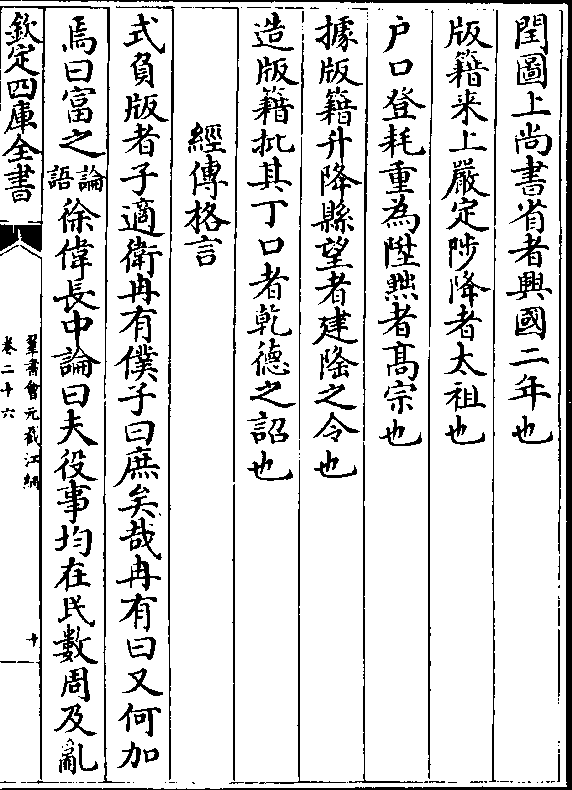 閏圖上尚書省者興國二年也
版籍来上嚴定陟降者太祖也
户口登耗重為陞㸃者高宗也
據版籍升降縣望者建隆之令也
造版籍批其丁口者乾德之詔也
經傳格言
式負版者子適衛冉有僕子曰庶矣哉冉有曰又何加
焉曰富之論語徐偉長中論曰夫役事均在民數周及亂
欽定四庫全書
羣書會元截江網
卷二十六
十